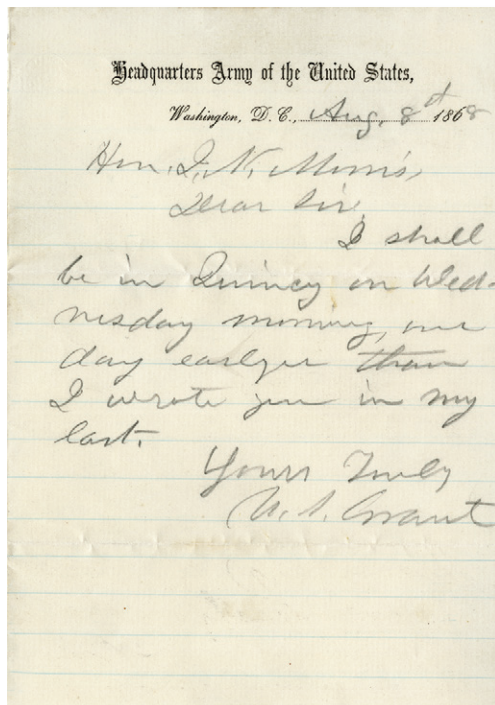 Headquarters Army of the United States,
Washington, D. C., Aug. 8th 1868
Hon. I. N. Morris,
Dear Sir,
I shall
be in Quincy on Wed-
nesday morning, one
day earlyer than
I wrote you in my
last.
Yours Truly
U. S. Grant